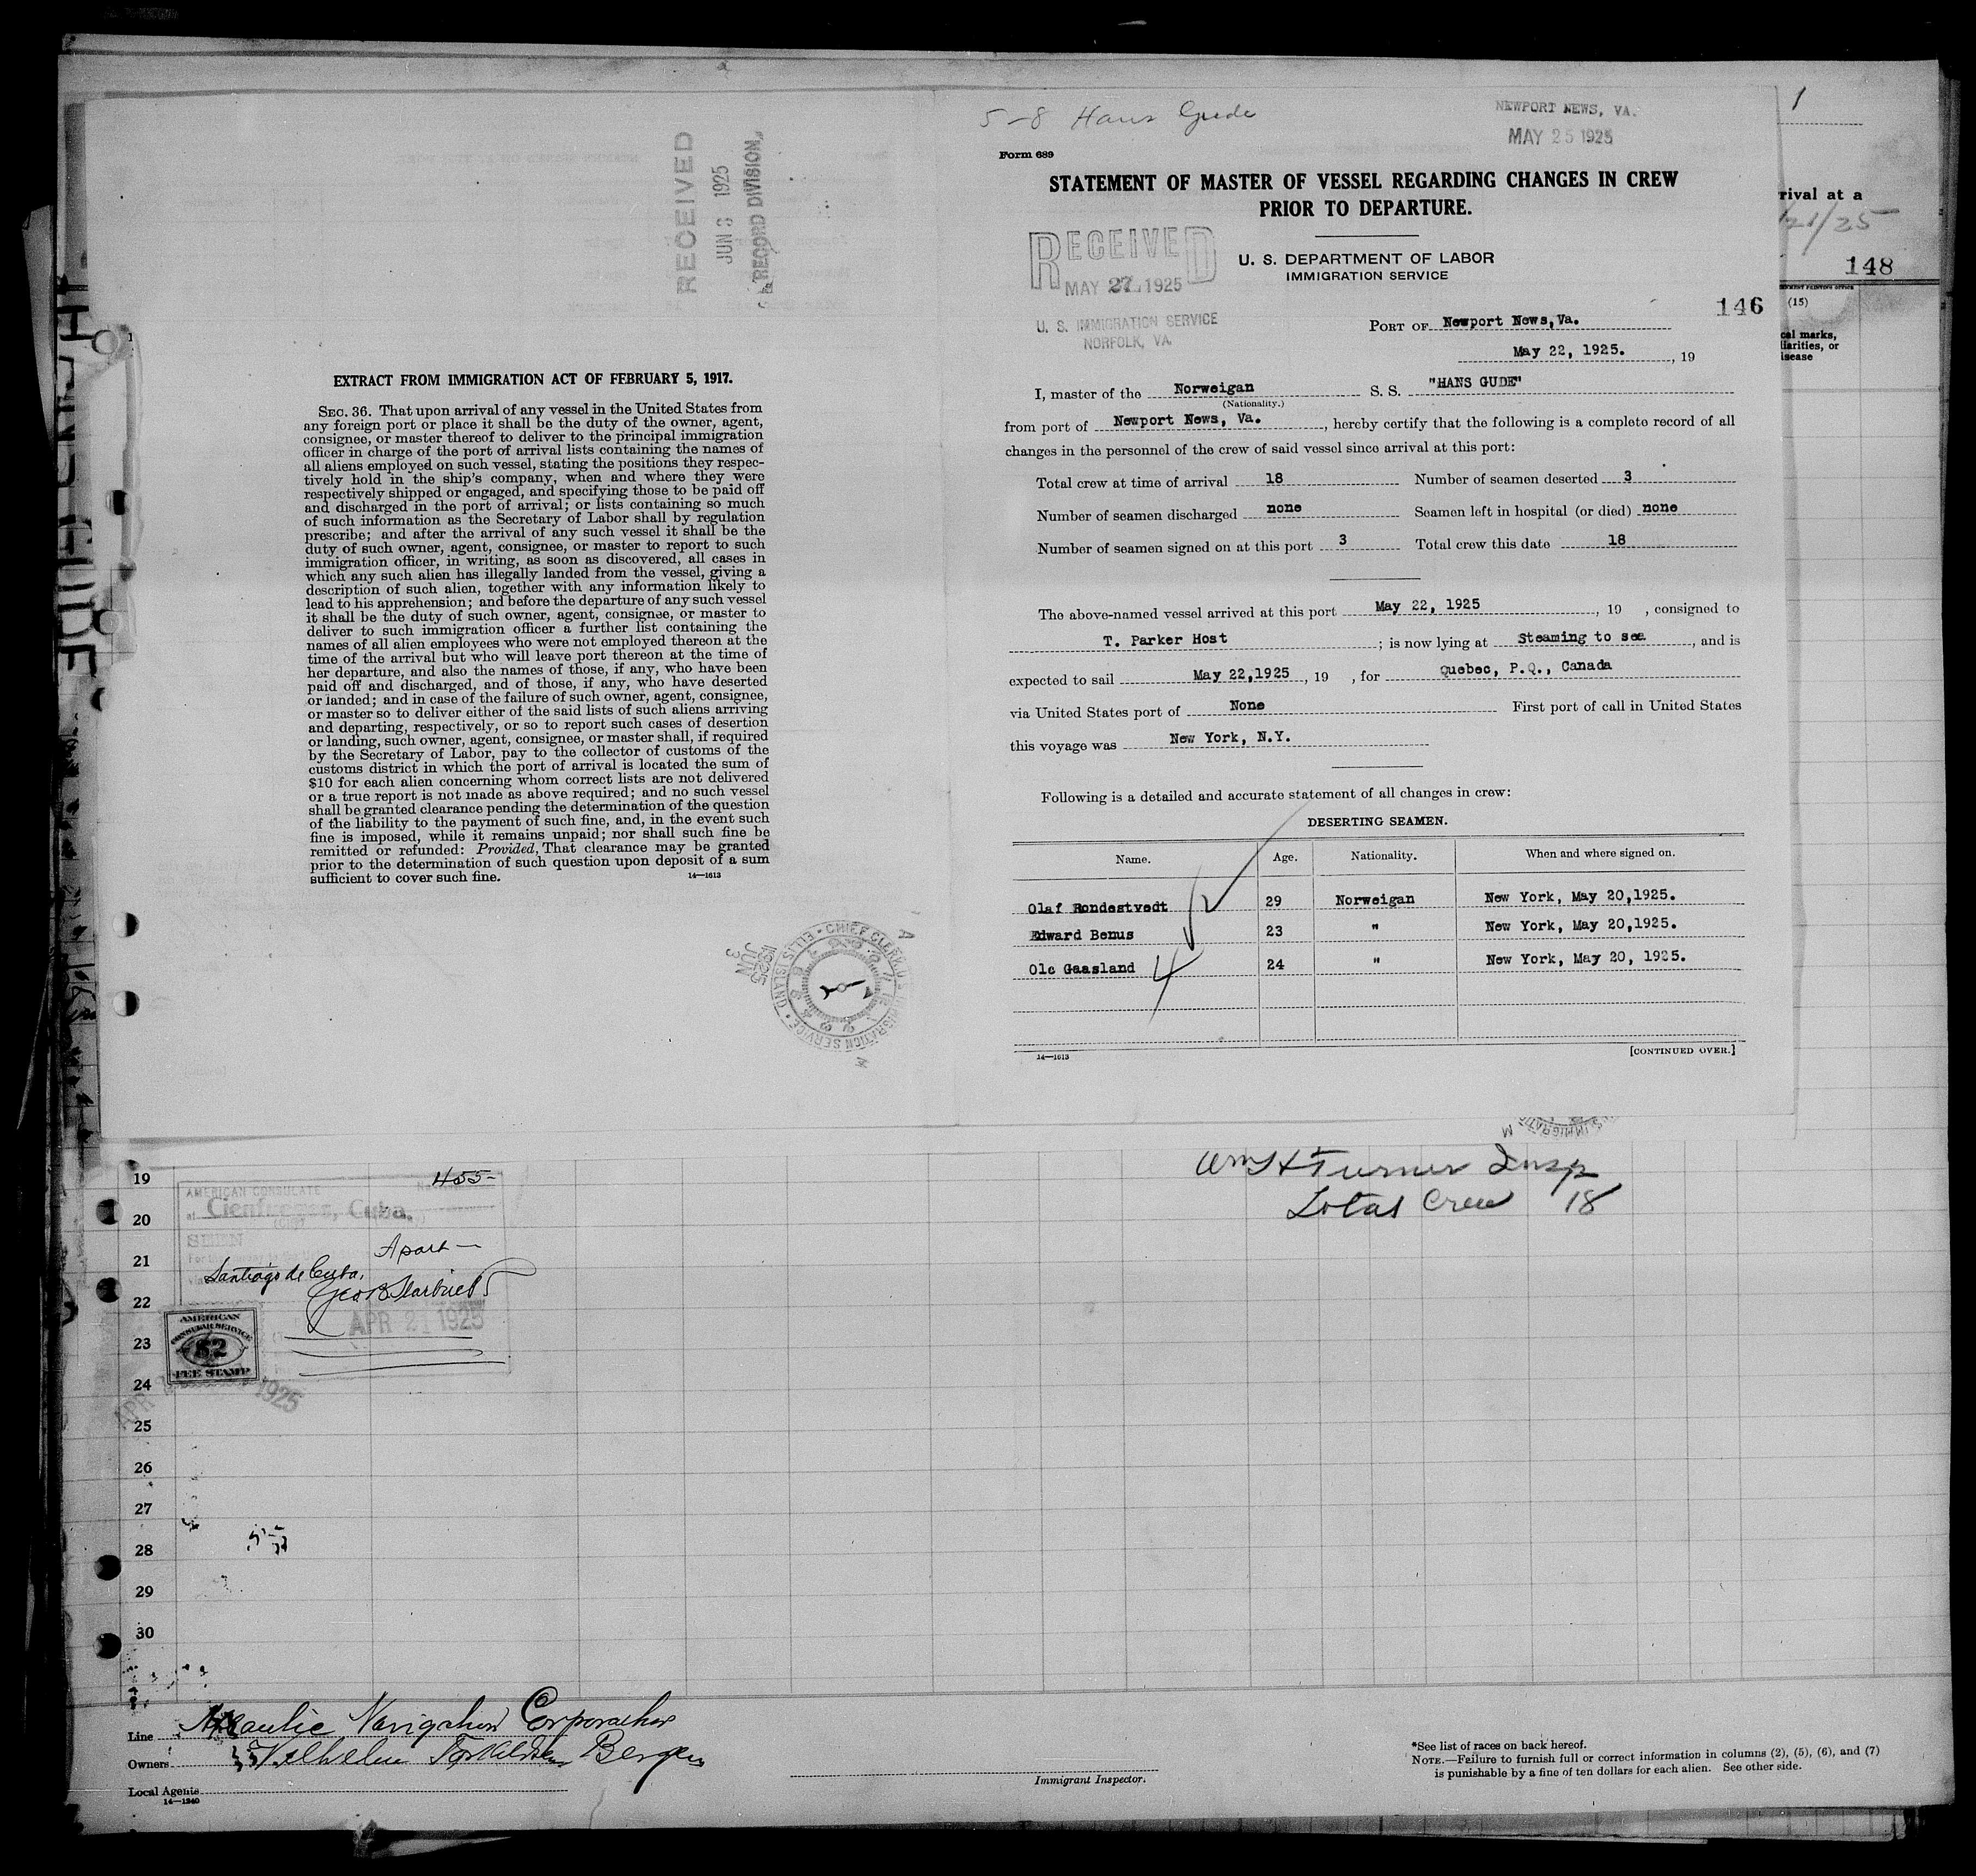 5-8 Hans Gude
NEWPORT NEWS, VA.
MAY 25 1925
RECEIVED
JUN 3 1925
RECORD DIVISION
EXTRACT FROM IMMIGRATION ACT OF FEBRUARY 5, 1917.
SEC. 36. That upon arrival of any vessel in the United States from
any foreign port or place it shall be the duty of the owner, agent,
consignee, or master thereof to deliver to the principal immigration
officer in charge of the port of arrival lists containing the names of
all aliens employed on such vessel, stating the positions they respec-
tively hold in the ship's company, when and where they were
respectively shipped or engaged, and specifying those to be paid off
and discharged in the port of arrival; or lists containing so much
of such information as the Secretary of Labor shall by regulation
prescribe; and after the arrival of any such vessel it shall be the
duty of such owner, agent, consignee, or master to report to such
immigration officer, in writing, as soon as discovered, all cases in
which any such alien has illegally landed from the vessel, giving a
description of such alien, together with any information likely to
lead to his apprehension; and before the departure of any such vessel
it shall be the duty of such owner, agent, consignee, or master to
deliver to such immigration officer a further list containing the
names of all alien employees who were not employed thereon at the
time of the arrival but who will leave port thereon at the time of
her departure, and also the names of those, if any, who have been
paid off and discharged, and of those, if any, who have deserted
or landed; and in case of the failure of such owner, agent, consignee,
or master so to deliver either of the said lists of such aliens arriving
and departing, respectively, or so to report such cases of desertion
or landing, such owner, agent, consignee, or master shall, if required
by the Secretary of Labor, pay to the collector of customs of the
customs district in which the port of arrival is located the sum of
$10 for each alien concerning whom correct lists are not delivered
or a true report is not made as above required; and no such vessel
shall be granted clearance pending the determination of the question
of the liability to the payment of such fine, and, in the event such
fine is imposed, while it remains unpaid; nor shall such fine be
remitted or refunded: Provided, That clearance may be granted
prior to the determination of such question upon deposit of a sum
sufficient to cover such fine.
14—1613
Form 689
STATEMENT OF MASTER OF VESSEL REGARDING CHANGES IN CREW
PRIOR TO DEPARTURE.
RECEIVED
MAY 27 1925
U. S. IMMIGRATION SERVICE
NORFOLK, VA.
U. S. DEPARTMENT OF LABOR
IMMIGRATION SERVICE
146
PORT OF Newport News, Va.
May 22, 1925. , 19
I, master of the Norweigan S. S. "HANS GUDE"
(Nationality.)
from port of Newport News, Va. , hereby certify that the following is a complete record of all
changes in the personnel of the crew of said vessel since arrival at this port:
Total crew at time of arrival 18 Number of seamen deserted 3
Number of seamen discharged none Seamen left in hospital (or died) none
Number of seamen signed on at this port 3 Total crew this date 18
The above-named vessel arrived at this port May 22, 1925 , 19 , consigned to
T. Parker Host ; is now lying at Steaming to sea , and is
expected to sail May 22,1925 , 19 , for Quebec, P.Q., Canada
via United States port of None First port of call in United States
this voyage was New York, N.Y.
Following is a detailed and accurate statement of all changes in crew:
DESERTING SEAMEN.
Name. Age. Nationality. When and where signed on.
Olaf Rondestvedt 29 Norweigan New York, May 20,1925.
Edward Benus 23 " New York, May 20,1925.
Ole Gaasland 24 " New York, May 20, 1925.
14—1613
[CONTINUED OVER.]
1
rival at a
/21/25
148
(15)
cal marks,
liarities, or
isease
HANS GUDE
19
20
21
22
23
24
25
26
27
28
29
30
455-
AMERICAN CONSULATE
at Cienfuegos, Cuba.
SEEN
Santiago de Cuba.
APR 21 1925
AMERICAN
CONSULAR SERVICE
$2
FEE STAMP
APR 1925
Wm H Turner Insp
Total Crew 18
Line Atlantic Navigation Corporation
Owners Wilhelm Torkildsen Bergen
Local Agents
14—1240
Immigrant Inspector.
*See list of races on back hereof.
NOTE.—Failure to furnish full or correct information in columns (2), (5), (6), and (7)
is punishable by a fine of ten dollars for each alien. See other side.